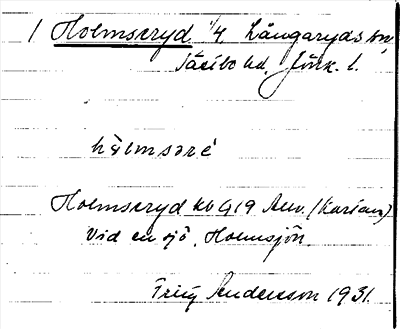 1 Holmseryd 1/4 Långaryds sn
Västbo hd. Jönk. l.
hòlmsəré
Holmseryd kb G19 Anv. (Karian)
Vid en sjö, Holmsjön.
Friej Andersson 1931.